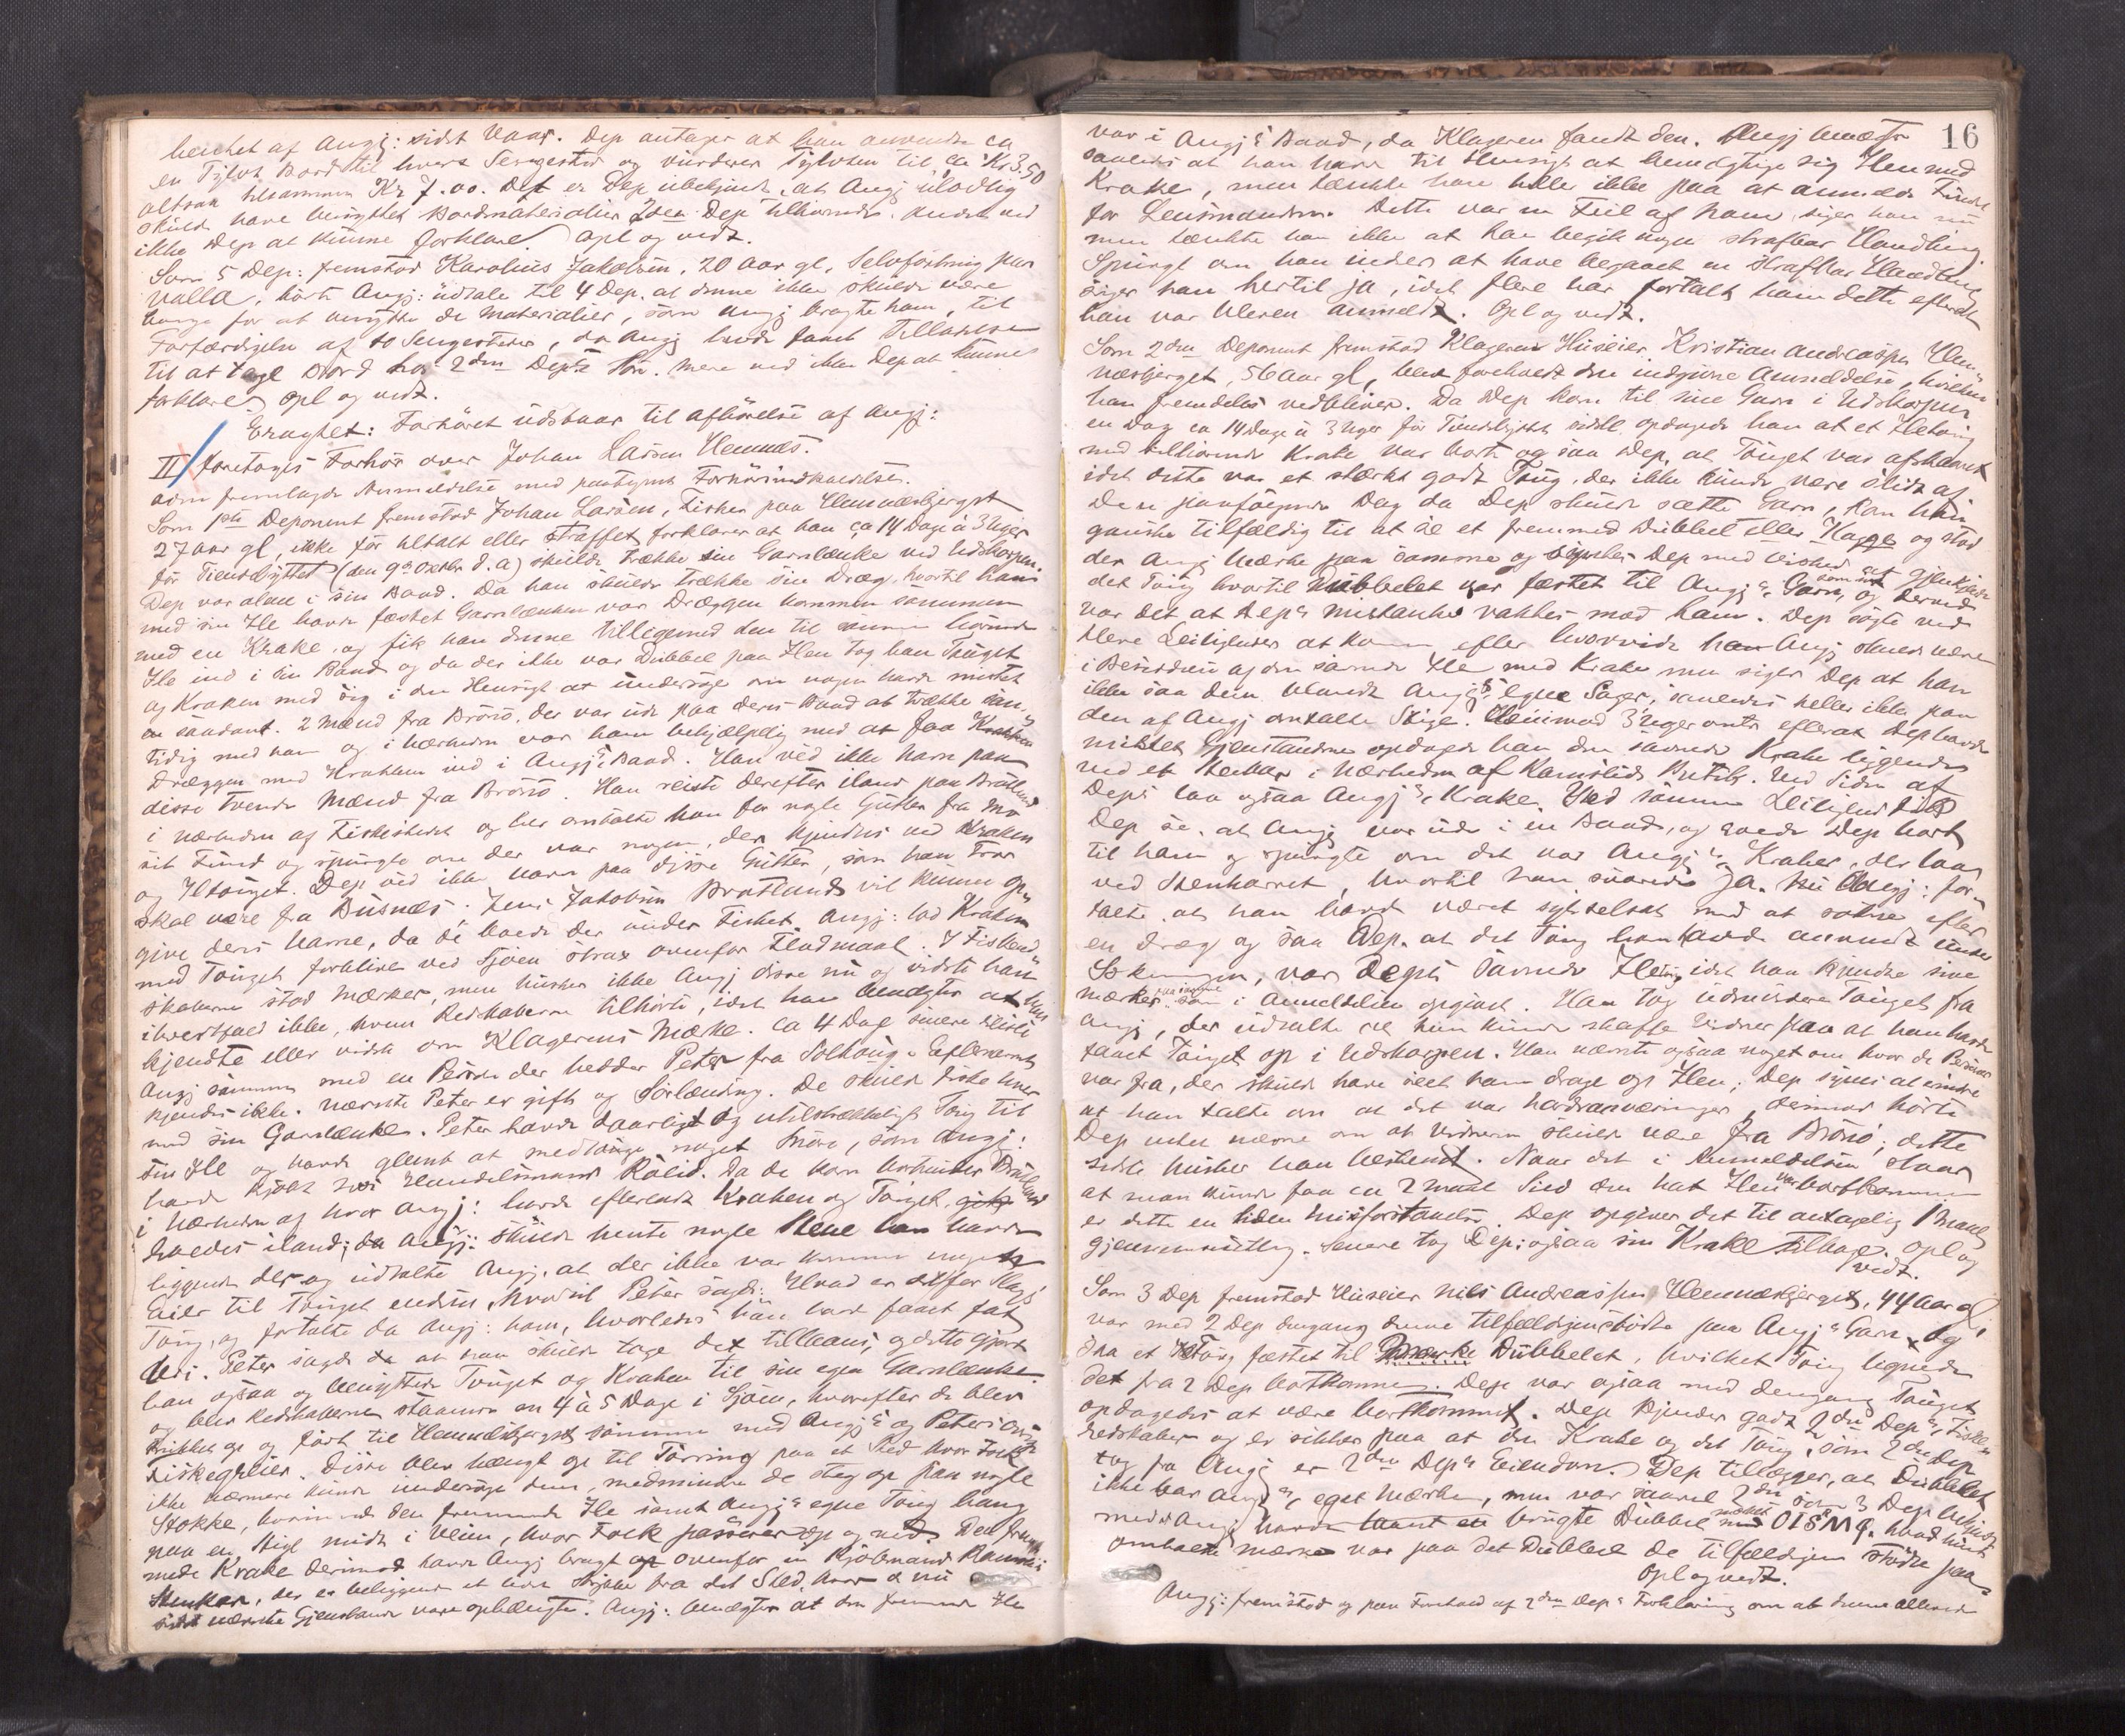 heichet af Angj: sidst Vaar. Dep antager at han anvendte ca
en Tylvt Bord til hvert Sengested og vurderer Tylvten til ca Kr 3.50
altsaa tilsammen Kr 7.00. Det er Dep ubekjendt, at Angj ulovlig
skulde have benyttet Bordmaterialier 2den Dep tilhørende. Andet ved
ikke Dep at kunne forklare. Opl og vedt.
Som 5 Dep: fremstod Karolius Jakobsen, 20 Aar gl, Selvfostring paa
Valla, hørte Angj: udtale til 4 Dep. at denne ikke skulde være
bange for at benytte de Materialier, som Angj bragte ham, til
Forfærdigelse af to Sengesteder, da Angj havde faaet Tilladelse
til at tage Bord hos 2den Depts Søn. Mere ved ikke Dep at kunne
forklare. Opl og vedt.
Eragtet: Forhøret udsbaar til afhørelse af Angj:
II/ foretoges Forhør over Johan Larsen Hemnæs.
Adm fremlagde Anmeldelse med paategnet Forhørsindkaldelse.
Som 1ste Deponent fremstod Johan Larsen, Fisker paa Hemnæsbjerget
27 Aar gl, ikke før tiltalt eller straffet, forklarer at han ca 14 Dage à 3 Uger
før Tiendebyttet (den 9de Oktbr d. a) skulde trække sin Garnlænke ved Udskarpen.
Dep var alene i sin Baad. Da han skulde trække sin Dræg, hvortil han
med sin Ile havde fæstet Garnlænken var Dræggen kommen sammen
med en Krake, og fik han denne tilligemed den til samme hørende
Ile ind i sin Baad og da der ikke var Dubbel paa Ilen tog han Touget
og Kraken med sig i den Hensigt at undersøge om nogen havde mistet
en saadant. 2 Mænd fra Brønø, der var ude paa deres Baad at trække sam-
tidig med ham og i nærheden var ham behjælpelig med at faa Krakken
Dræggen med Krakken ind i Angj's Baad. Han ved ikke Navn paa
disse tvende Mænd fra Brønø. Han reiste derefter iland paa Bratland
i nærheden af Fiskestedet og her omtalte han for nogle Gutter fra Mo
sit Fund og spurgte om der var nogen, der kjendtes ved Kraken
og Iletouget. Dep ved ikke navn paa disse Gutter, som han tror
skal være fra Busnæs; Jens Jakobsen Bratland vil kunne op-
give deres Navne, da de boede der under Fisket. Angj: lod Kraken
med Touget forblive ved Sjøen strax ovenfor Flodmaal. I Fiskered-
skaberne stod Mærker, men husker ikke Angj disse nu og vidste han
ihvertfald ikke, hvem Redskaberne tilhørte, idet han benægter at han
kjendte eller vidste om Klagerens Mærke. Ca 4 Dage senere reiste
Angj sammen med en Person der hedder Peter fra Solhaug. Efternavnet
kjendes ikke. Nævnte Peter er gift og Sørlænding. De skulde fiske hver
med sin Garnlænke. Peter havde daarligt og utilstrækkeligt Toug til
sin Ile og havde glemt at medbringe noget Snøre, som Angj:
havde kjøbt hos Handelsmand Rølid. Da de kom herunder Bratland
i nærheden af hvor Angj: havde efterladt Kraken og Touget, gik
saaledes iland; da Angj: skulde hente nogle Stene han havde
liggende der og udtalte Angj. at der ikke var kommen nogen
Eier til Touget endnu, hvortil Peter sagde: Hvad er det for Slags
Toug, og fortalte da Angj: ham, hvorledes han havde faaet fat
deri. Peter sagde da at han skulde tage det tillaans, og dette gjorde
han ogsaa og benyttede Touget og Kraken til sin egen Garnlænke
og blev Redskaberne staaende en 4 à 5 Dage i Sjøen, hvorefter de blev
trukket op og ført til Hemnæsbjerget sammen med Angj's og Peters øvrige
Fiskegreier. Disse blev hængt op til Tørring paa et Sted hvor Folk
ikke nærmere kunde undersøge dem, medmindre de steg op paa nogle
Stokke, hvorimod den fremmede Ile samt Angj's egne Toug hang
paa en Stige midt i Veien, hvor Folk passerer op og ned. Den frem-
mede Krake derimod havde Angj bragt op ovenfor en Kjøbmand
Stenkar, der er beliggende et lidet Stykke fra det Sted, hvor de nu
sidst nævnte Gjenstande vare ophængte. Angj: benægter at den fremmede Ile
16
var i Angj's Baad, da Klageren fandt den. Angj benægter
saaledes at han havde til Hensigt at bemægtige sig Ilen med
Krake, men tænkte han heller ikke paa at anmelde Fundet
for Lensmanden. Dette var en Feil af ham, siger han nu
men tænkte han ikke at han begik nogen strafbar Handling.
Spurgt om han indser at have begaaet en strafbar Handling
siger han hertil ja, idet flere har fortalt ham dette efterat
han var bleven anmeldt. Opl og vedt.
Som 2den Deponent fremstod Klageren Huseier Kristian Andreassen Hem-
næsbjerget, 56 Aar gl, blev foreholdt den indgivne Anmeldelse, hvilken
han fremdeles vedbliver. Da Dep kom til sine Garn i Udskarpen
en Dag ca 14 Dage à 3 Uger før Tiendebyttet sidstl. opdagede han at et Iletoug
med tilhørende Krake var borte og saa Dep. at Touget var afskaaret
idet dette var et stærkt godt Toug, der ikke kunde være slidt af.
Den paafølgende Dag da Dep skulde sætte Garn, kom han
ganske tilfældig til at se et fremmed Dubbel eller Kagge og stod
der Angj Mærke paa samme og Dep med Vished at gjenkjende
det Toug hvortil Dubbelet var fæstet til Angj's Garn, som sit og derved
var det at Dep's Mistanke vaktes mod ham. Dep søgte ved
flere Leiligheder at komme efter hvorvidt han Angj skulde være
i Besiddelse af den savnede Ile med Krake men siger Dep at han
ikke saa den blandt Angj's egne Sager, saaledes heller ikke paa
den af Angj omtalte Stige. Henimod 3 Uger omtr efterat Dep havde
mistet Gjenstandene opdagede han den savnede Krake liggende
ved et Stenkar i nærheden af Butik. Ved Siden af
Dep's laa ogsaa Angj's Krake. Ved samme Leilighed fik
Dep se, at Angj var ude i en Baad, og roede Dep bort
til ham og spurgte om det var Angj's Kraker, der laa
ved Stenkarret, hvortil han svarede ja. Nu Angj: for-
talte, at han havde været sysselsat med at sokne efter
en Dræg og saa Dep. at det Toug han havde anvendt under
Sokningen, var Dep's savnede Iletoug idet han kjendte sine
Mærker paa samme som i Anmeldelsen opgivet. Han tog uden videre Touget fra
Angj, der udtalte at han kunde skaffe Vidner paa at han havde
faaet Touget op i Udskarpen. Han nævnte ogsaa noget om hvor de Personer
var fra, der skulde have seet ham drage op Ilen; Dep synes at erindre
at han talte om at det var hardranværinger, derimod hørte
Dep intet nævne om at Vidnerne skulde være fra Brønø; dette
sidste husker han bestemt. Naar det i Anmeldelsen staar
at man kunde faa en 2 maal Sild den Nat Ilen var bortkommen
er dette en liden Misforstaaelse. Dep opgiver det til antagelig 1 Maal
gjennemsnitlig. Senere tog Dep: ogsaa sin Krake tilbage. Opl og
vedt.
Som 3 Dep fremstod Huseier Nils Andreassen Hemnæsbjerget, 44 Aar gl.
var med 2 Dep dengang denne tilfældigvis stødte paa Angj's Garn og
saa et Toug fæstet til Dubbelet, hvilket Toug lignede
det fra 2 Dep bortkomne. Dep var ogsaa med dengang Touget
opdagedes at være bortkommet. Dep kjender godt 2den Dep's Fiske-
redskaber og er sikker paa at den Krake og det Toug, som 2den Dep
tog fra Angj er 2den Dep's Eiendom. Dep tillægger, at Dubbelet
ikke bar Angj's eget Mærke, men var saavel 2den som 3 Dep bekjendt
med at Angj havde brugte Dubbel mærket OISMG. hvad sidst-
omtalte Mærke var paa det Dubbel de tilfældigen stødte paa.
Opl og vedt.
Angj: fremstod og paa Forehold af 2den Dep's Forklaring om at denne allerede